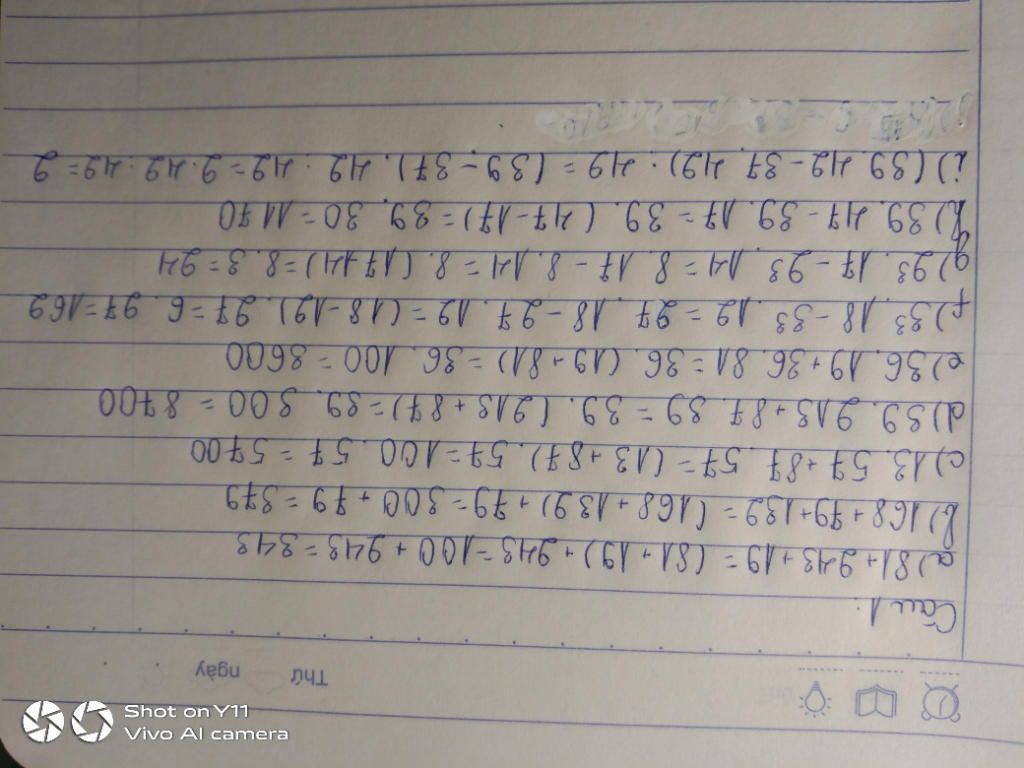 Thứ ngày
Câu 1:
a) 81 + 243 + 19 = (81 + 19) + 243 = 100 + 243 = 343
b) 168 + 79 + 132 = (168 + 132) + 79 = 300 + 79 = 379
c) 13. 57 + 87. 57 = (13 + 87). 57 = 100. 57 = 5700
d) 39. 213 + 87. 39 = 39. (213 + 87) = 39. 300 = 8700
e) 36. 19 + 36. 81 = 36. (19 + 81) = 36. 100 = 3600
f) 3³. 18 - 3³. 12 = 27. 18 - 27. 12 = (18 - 12). 27 = 6. 27 = 162
g) 2³. 17 - 2³. 14 = 8. 17 - 8. 14 = 8. (17 14) = 8. 3 = 24
h) 39. 47 - 39. 17 = 39. (47 - 17) = 39. 30 = 1170
i) (39. 42 - 37. 42) : 42 = (39 - 37). 42 : 42 = 2. 42 : 42 = 2
Shot on Y11
Vivo AI camera